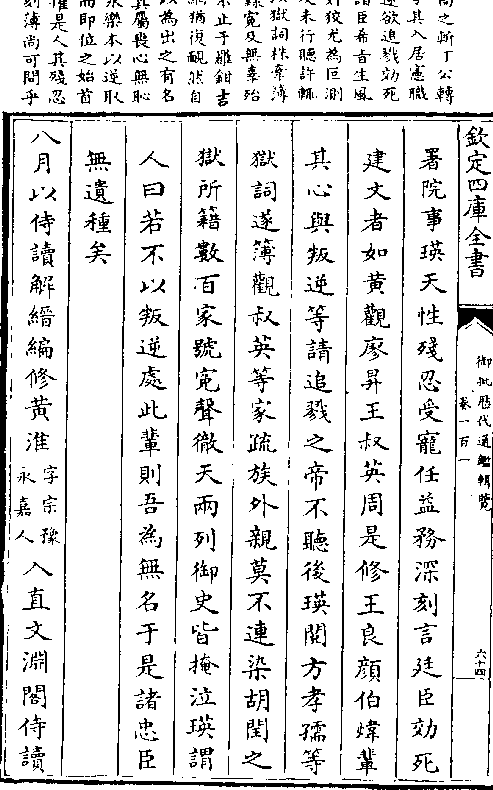 高之斬丁公轉
其入居憲職
遂欲追戮効死
諸臣希旨生風
奸狡尤為叵測
及未行聽許輒
以獄詞株牽簿
錄寃及無辜殆
不止于羅鉗吉
網猶復靦然自
以為出之有名
真屬喪心無恥
永樂本以逆取
而即位之始首
是人其殘忍
刻薄尚可問乎
欽定四庫全書
御批歷代通鑑輯覽
卷一百一
六十四
署院事瑛天性殘忍受寵任益務深刻言廷臣効死
建文者如黃觀廖昇王叔英周是修王良顔伯瑋輩
其心與叛逆等請追戮之帝不聽後瑛閱方孝孺等
獄詞遂簿觀叔英等家疏族外親莫不連染胡閏之
獄所籍數百家號寃聲徹天兩列御史皆掩泣瑛謂
人曰若不以叛逆處此輩則吾為無名于是諸忠臣
無遺種矣
八月以侍讀解縉編修黃淮字宗豫永嘉人入直文淵閣侍讀